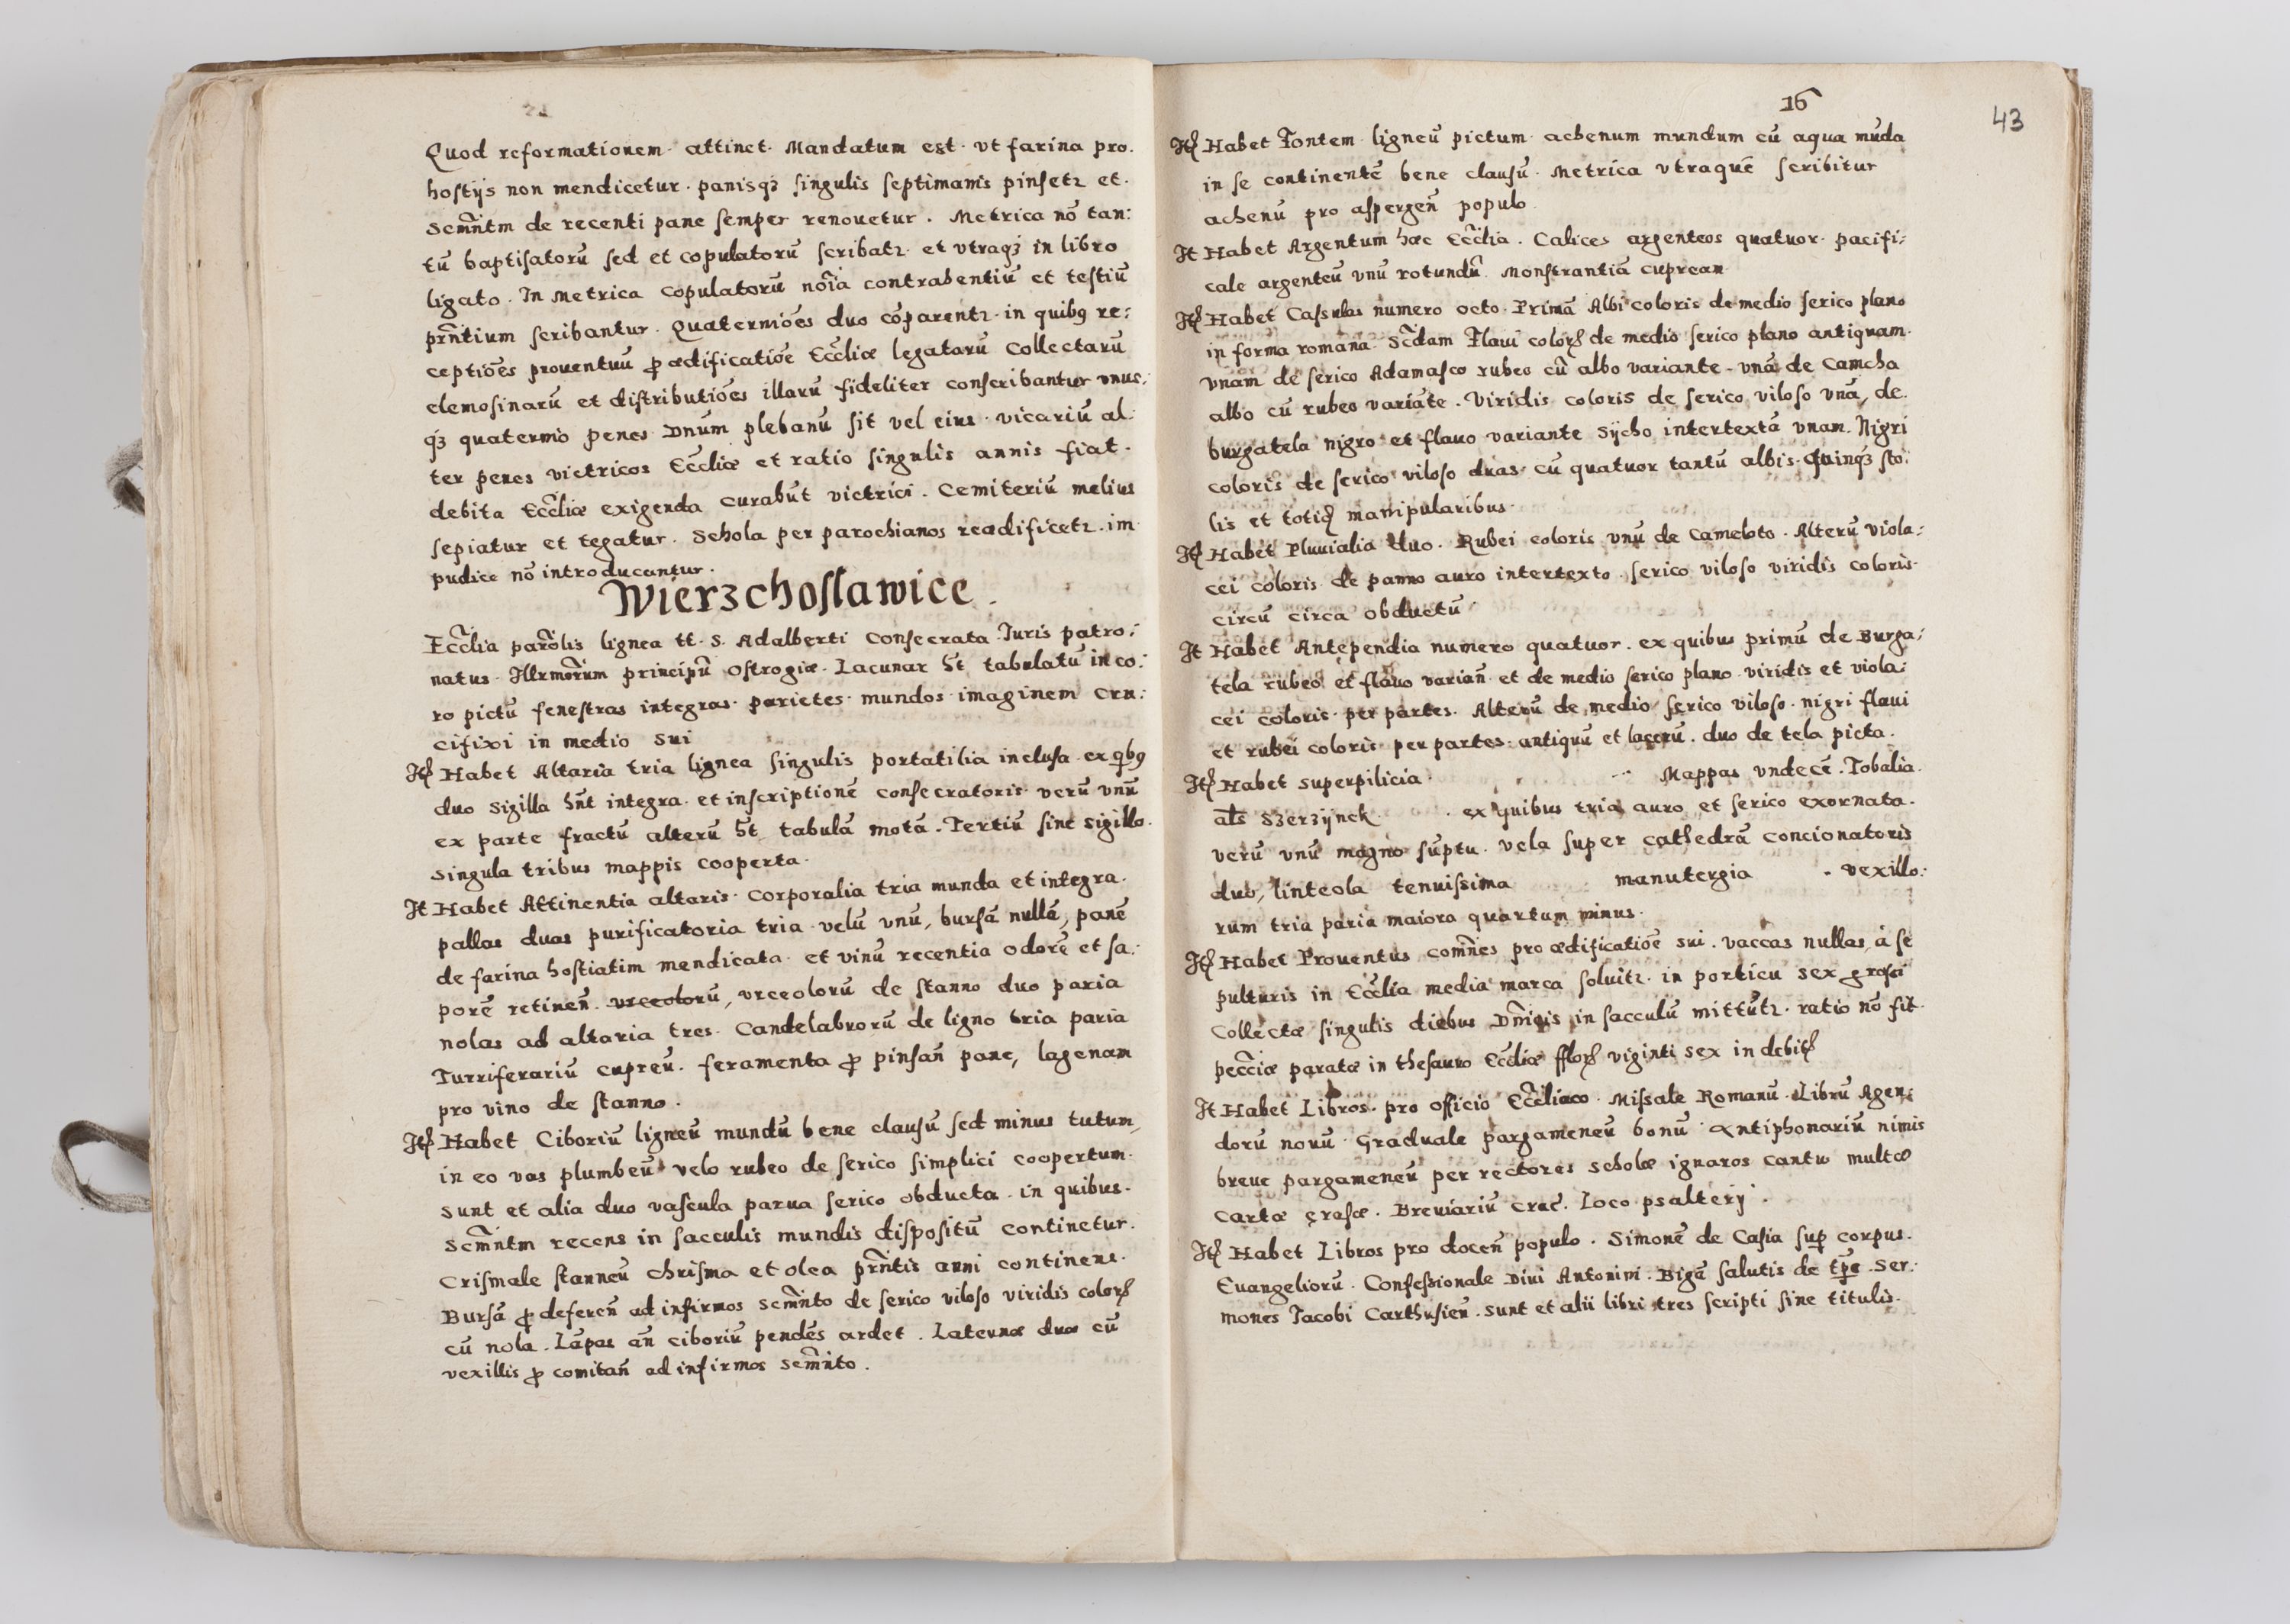 Quod reformationem attinet. Mandatum est. vt farina pro.
hostijs non mendicetur. panisqȝ singulis septimanis pinsetꝛ et.
Scmn̄tm de recenti pane semper renouetur. Metrica nō tan:
tū baptisatorū sed et copulatorū scribatꝛ. et vtraqȝ in libro
ligato. In Metrica copulatorū noīa contrahentiū et testiū
prn̄tium scribantur. Quaterniōes duo cōparentꝛ. in quibꝰ re:
ceptiōēs prouentuū ꝓ ædificatiōe Eccl̄iæ legatarū Collectarū
elemosinarū et distributiōes illarū fideliter conscribantur vnus:
qȝ quaternio penes Dn̄um plebanū sit vel eius vicariū al:
ter penes victricos Eccl̄iæ et ratio singulis annis fiat.
debita Eccl̄iæ exigenda curabūt victrici. Cemiteriū melius
sepiatur et tegatur. Schola per parochianos reædificetꝛ. im
pudicæ nō introducantur.
Wierzchoslawice.
Eccl̄ia parol̄is lignea tt. S. Adalberti Consecrata. Iuris patro:
natus. Illrmōrum principū Ostrogiæ. Lacunar h̄t tabulatū in co:
ro pictū fenestras integras. parietes. mundos. imaginem Cru:
cifixi in medio sui
Itꝭ Habet Altaria tria lignea singulis portatilia inclusa. ex qbꝰ
duo Sigilla hn̄t integra. et inscriptionē consecratoris. verū vnū
ex parte fractū alterū h̄t tabulā motā. Tertiū sine sigillo.
Singula tribus mappis cooperta.
It Habet Attinentia altaris. Corporalia tria munda et integra.
pallas duas purificatoria tria. velū vnū, bursā nullā, panē
de farina hostiatim mendicata. et vinū recentia odorē et sa:
porē retinen̄. vrceolorū, vrceolorū de stanno duo paria
nolas ad altaria tres. Candelabrorū de ligno tria paria
Turriferariū cupreū. feramenta ꝓ pinsan̄ pane, lagenam
pro vino de stanno.
Itꝭ Habet Ciboriū ligneū mundū bene clausū sed minus tutum,
in eo vas plumbeū velo rubeo de serico simplici coopertum.
sunt et alia duo vascula parua serico obducta. in quibus.
Scmn̄tm recens in sacculis mundis dispositū continetur.
Crismale stanneū chrisma et olea prn̄tis anni continens.
Bursā ꝓ deferen̄ ad infirmos Scmn̄to de serico viloso viridis colorꝭ
cū nola. Lāpas an̄ ciboriū pendēs ardet. Laternæ duæ cū
vexillis ꝓ comitan̄ ad infirmos Scmn̄to.
16
43
Itꝭ Habet Fontem ligneū pictum. achenum mundum cū aqua mūda
in se continentē bene clausū. Metrica vtraquē scribitur
achenū pro aspergen̄ populo
It Habet Argentum hæc Eccl̄ia. Calices argenteos quatuor. pacifi:
cale argenteū vnū rotundū. Monstrantiā cupream
Itꝭ Habet Cassulas numero octo. Primā Albi coloris de medio serico plano
in forma romana. Scd̄am Flaui colorꝭ de medio serico plano antiquam.
vnam de serico Adamasco rubeo cū albo variante. vnā de Camcha
albo cū rubeo variāte. Viridis coloris de serico viloso vnā, de.
burgatela nigro et flauo variante Sycho intertextā vnam. Nigri
coloris de serico viloso duas. cū quatuor tantū albis. Quinqȝ sto:
lis et totiꝭ manipularibus.
Itꝭ Habet Pluuialia duo. Rubei coloris vnū de Cameloto. Alterū viola:
cei coloris de panno auro intertexto. serico viloso viridis coloris.
circū circa obductū
It Habet Antependia numero quatuor. ex quibus primū de Burga:
tela rubeo et flauo varian̄ et de medio serico plano. viridis et viola:
cei coloris. per partes. Alterū de medio serico viloso. nigri flaui
et rubei coloris per partes. antiquū et lacerū. duo de tela picta.
Itꝭ Habet superpilicia. Mappas vndecē. Tobalia.
als Szerzijnck. ex quibus tria auro et serico exornata.
verū vnū magno sūptu. vela super cathedrā concionatoris
duo, linteola tenuissima manutergia. vexillo:
rum tria paria maiora quartum minus.
Itꝭ Habet Prouentus com̄nes pro ædificatiōe sui. vaccas nullas, à se
pulturis in Eccl̄ia media marca soluitꝛ. in porticu sex grossi
Collectæ singulis diebus Dn̄icis in sacculū mittūtꝛ. ratio nō fit.
pecc̄iæ paratæ in thesauro Eccl̄iæ fflorꝭ viginti sex in debitꝭ
It Habet Libros. pro officio Eccl̄iiaco. Missale Romanū. Librū Agen:
dorū nouū. Graduale pargameneū bonū. Antiphonariū nimis
breue pargameneū per rectores Scholæ ignaros cantu multæ
cartæ erasæ. Breuiariū crac̄. Loco psalterij.
Itꝭ Habet Libros pro docen̄ populo. Simonē de Casia sup̱ corpus.
Euangeliorū. Confessionale Diui Antonini. Bigā salutis de tp̄e. Ser:
mones Jacobi Carthusien̄. Sunt et alii libri tres scripti sine titulis.